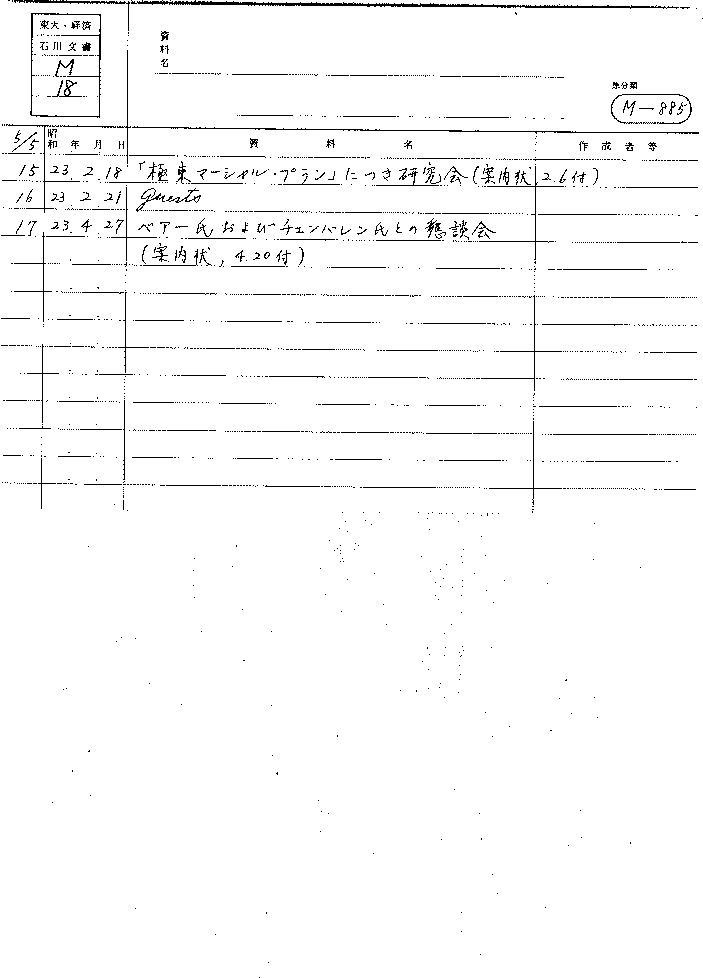 東大・経済
石川文書
M
18
資料名
M-885
5/5 昭和 年 月 日 資料名 作成者等
15 23.2.18 「極東マーシャル・プラン」につき研究会(案内状,2.6付)
16 23.2.21 guests
17 23.4.27 ベアー氏およびチェンバレン氏との懇談会
(案内状,4.20付)